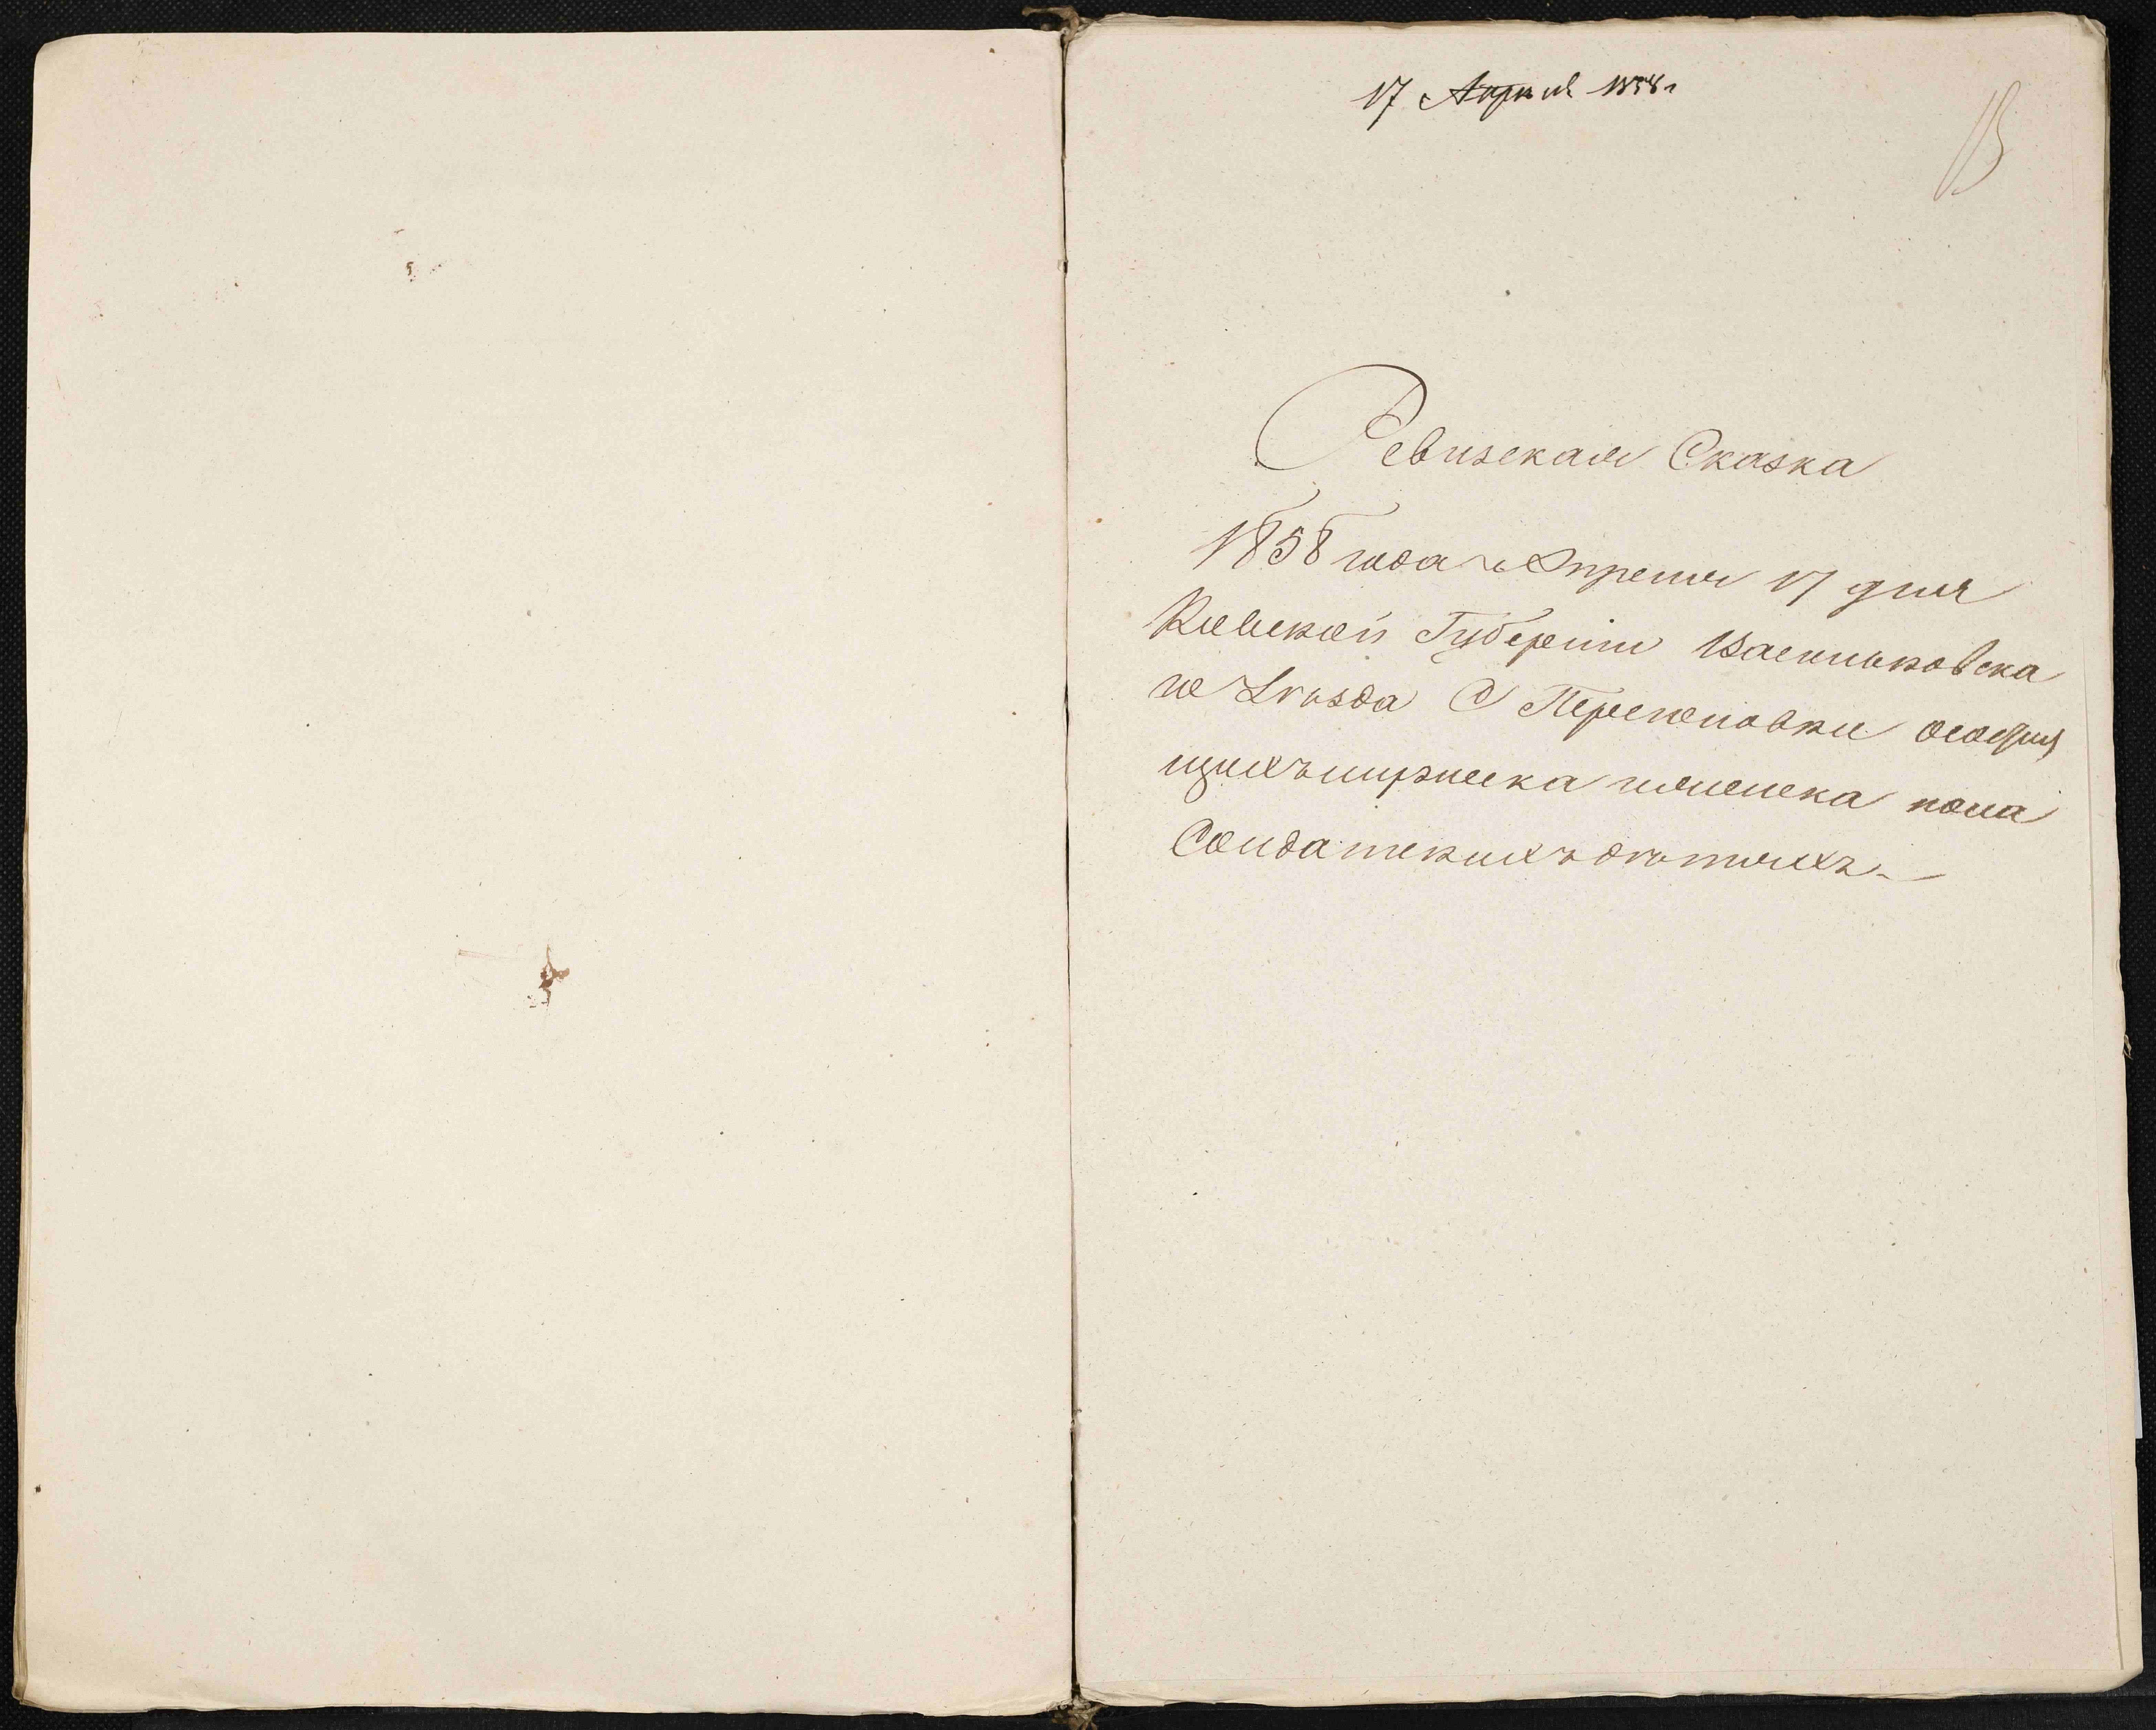 17 Апреля 1858 г
Ревизская Сказка
1858 года Апреля 17 дня
Киевской Губернии Васильковска
го Уѣзда С Перегоновки
мужеска женска пола
Солдатскихъ дѣтяхъ